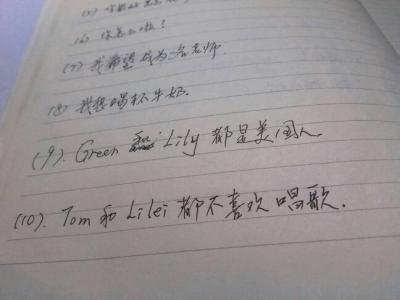 (6) 你怎么啦!
(7) 我希望成为一名老师.
(8) 我想喝杯牛奶.
(9). Green 和 Lily 都是美国人
(10). Tom 和 Lilei 都不喜欢唱歌.